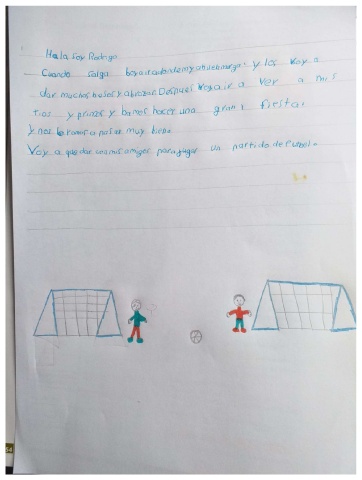 Hola soy Rodrigo
Cuando salga boy a casa de my abuela margari y los voy a
dar muchos besos y abrazos. Despues voy a ir a ver a mis
tios y primos y bamos hacer una gran fiesta
y nos lo bamos a pasar muy bien.
Voy a quedar con mis amigos para jugar un partido de futbol.
54